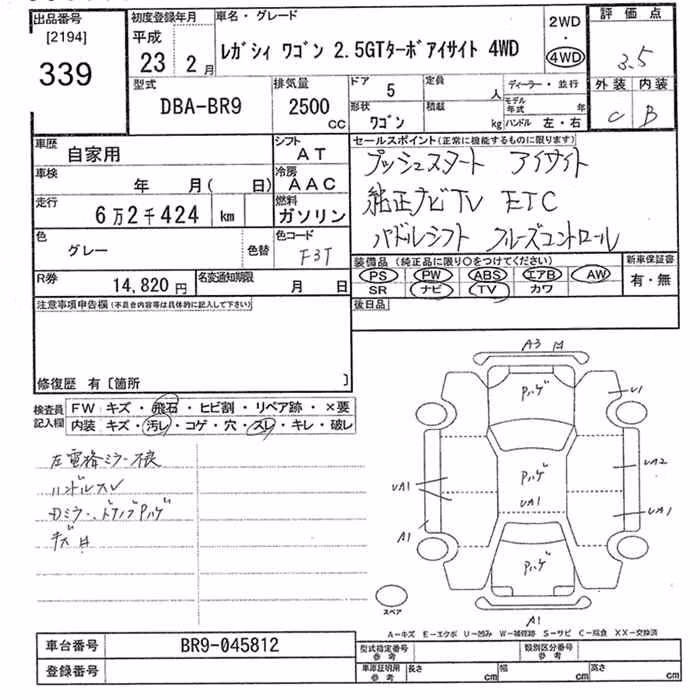 出品番号
[2194]
339
初度登録年月
平成
23 2月
車名・グレード
レガシィ ワゴン 2.5GTターボアイサイト 4WD
2WD
・
4WD
評価点
3.5
外装 内装
C B
型式
DBA-BR9
排気量
2500
CC
ドア 5
定員 人
ディーラー・並行
形状
ワゴン
積載 kg
モデル年式 年
ハンドル 左・右
車歴
自家用
シフト
AT
車検
年 月( 日)
冷房
AAC
走行
6万2千424 km
燃料
ガソリン
色
グレー
色替
色コード
F3T
R券
14,820円
名変通知期限
月 日
セールスポイント(正常に機能するものに限ります)
プッシュスタート アイサイト
純正ナビTV ETC
パドルシフト クルーズコントロール
装備品(純正品に限り○をつけてください)
PS PW ABS エアB AW
SR ナビ TV カワ
新車保証書
有・無
後日品
注意事項申告欄(不具合内容等は具体的に記入して下さい)
修復歴 有〔箇所 〕
検査員
記入欄
FW キズ・飛石・ヒビ割・リペア跡・×要
内装 キズ・汚レ・コゲ・穴・スレ・キレ・破レ
左電格ミラー不良
ハンドルスレ
Dミラー、ドアノブPハゲ
キズ
A3
Pハゲ
U1
Pハゲ
UA2
UA1
UA1
UA1
A1
Pハゲ
A1
スペア
A-キズ E-エクボ U-凹み W-補修跡 S-サビ C-腐食 XX-交換済
車台番号
BR9-045812
登録番号
型式指定番号
参考
類別区分番号
参考
車庫証明用
参考
長さ cm
幅 cm
高さ cm